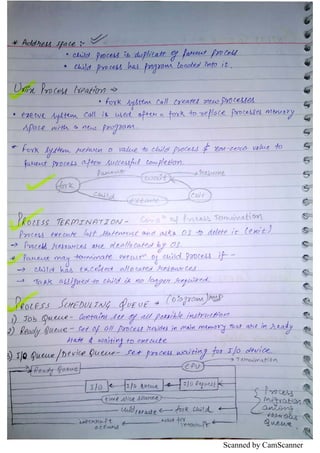 * Address space :-
• child process is duplicate of parent process
• child process has program loaded into it.
Unix Process Creation →
• fork system call creates new processes
• execve system call is used after a fork to replace processes memory
space with a new program.
* Fork system return 0 value to child process & non-zero value to
parent process after successful completion.
Parent wait resume
fork
child execve exit
PROCESS TERMINATION-
Process execute last statement and asks OS to delete it (exit)
→ Process resources are deallocated by OS.
* Parent may terminate of child process if -
→ child has exceeded allocated resources
→ Task assigned to child is no longer required
PROCESS SCHEDULING QUEUE → (diagram)
1) Job Queue- Contains set of all possible instruction
2) Ready Queue- set of all process resides in main memory that are in ready
state & waiting to execute
3) I/O Queue/Device Queue- set process waiting for I/O device.
→ Ready Queue CPU → termination
I/O I/O Queue I/O Request
time slice shared
child execute ← fork child
interrupt occurs wait for interrupt
Process
migration
among
various
Queue.
Scanned by CamScanner